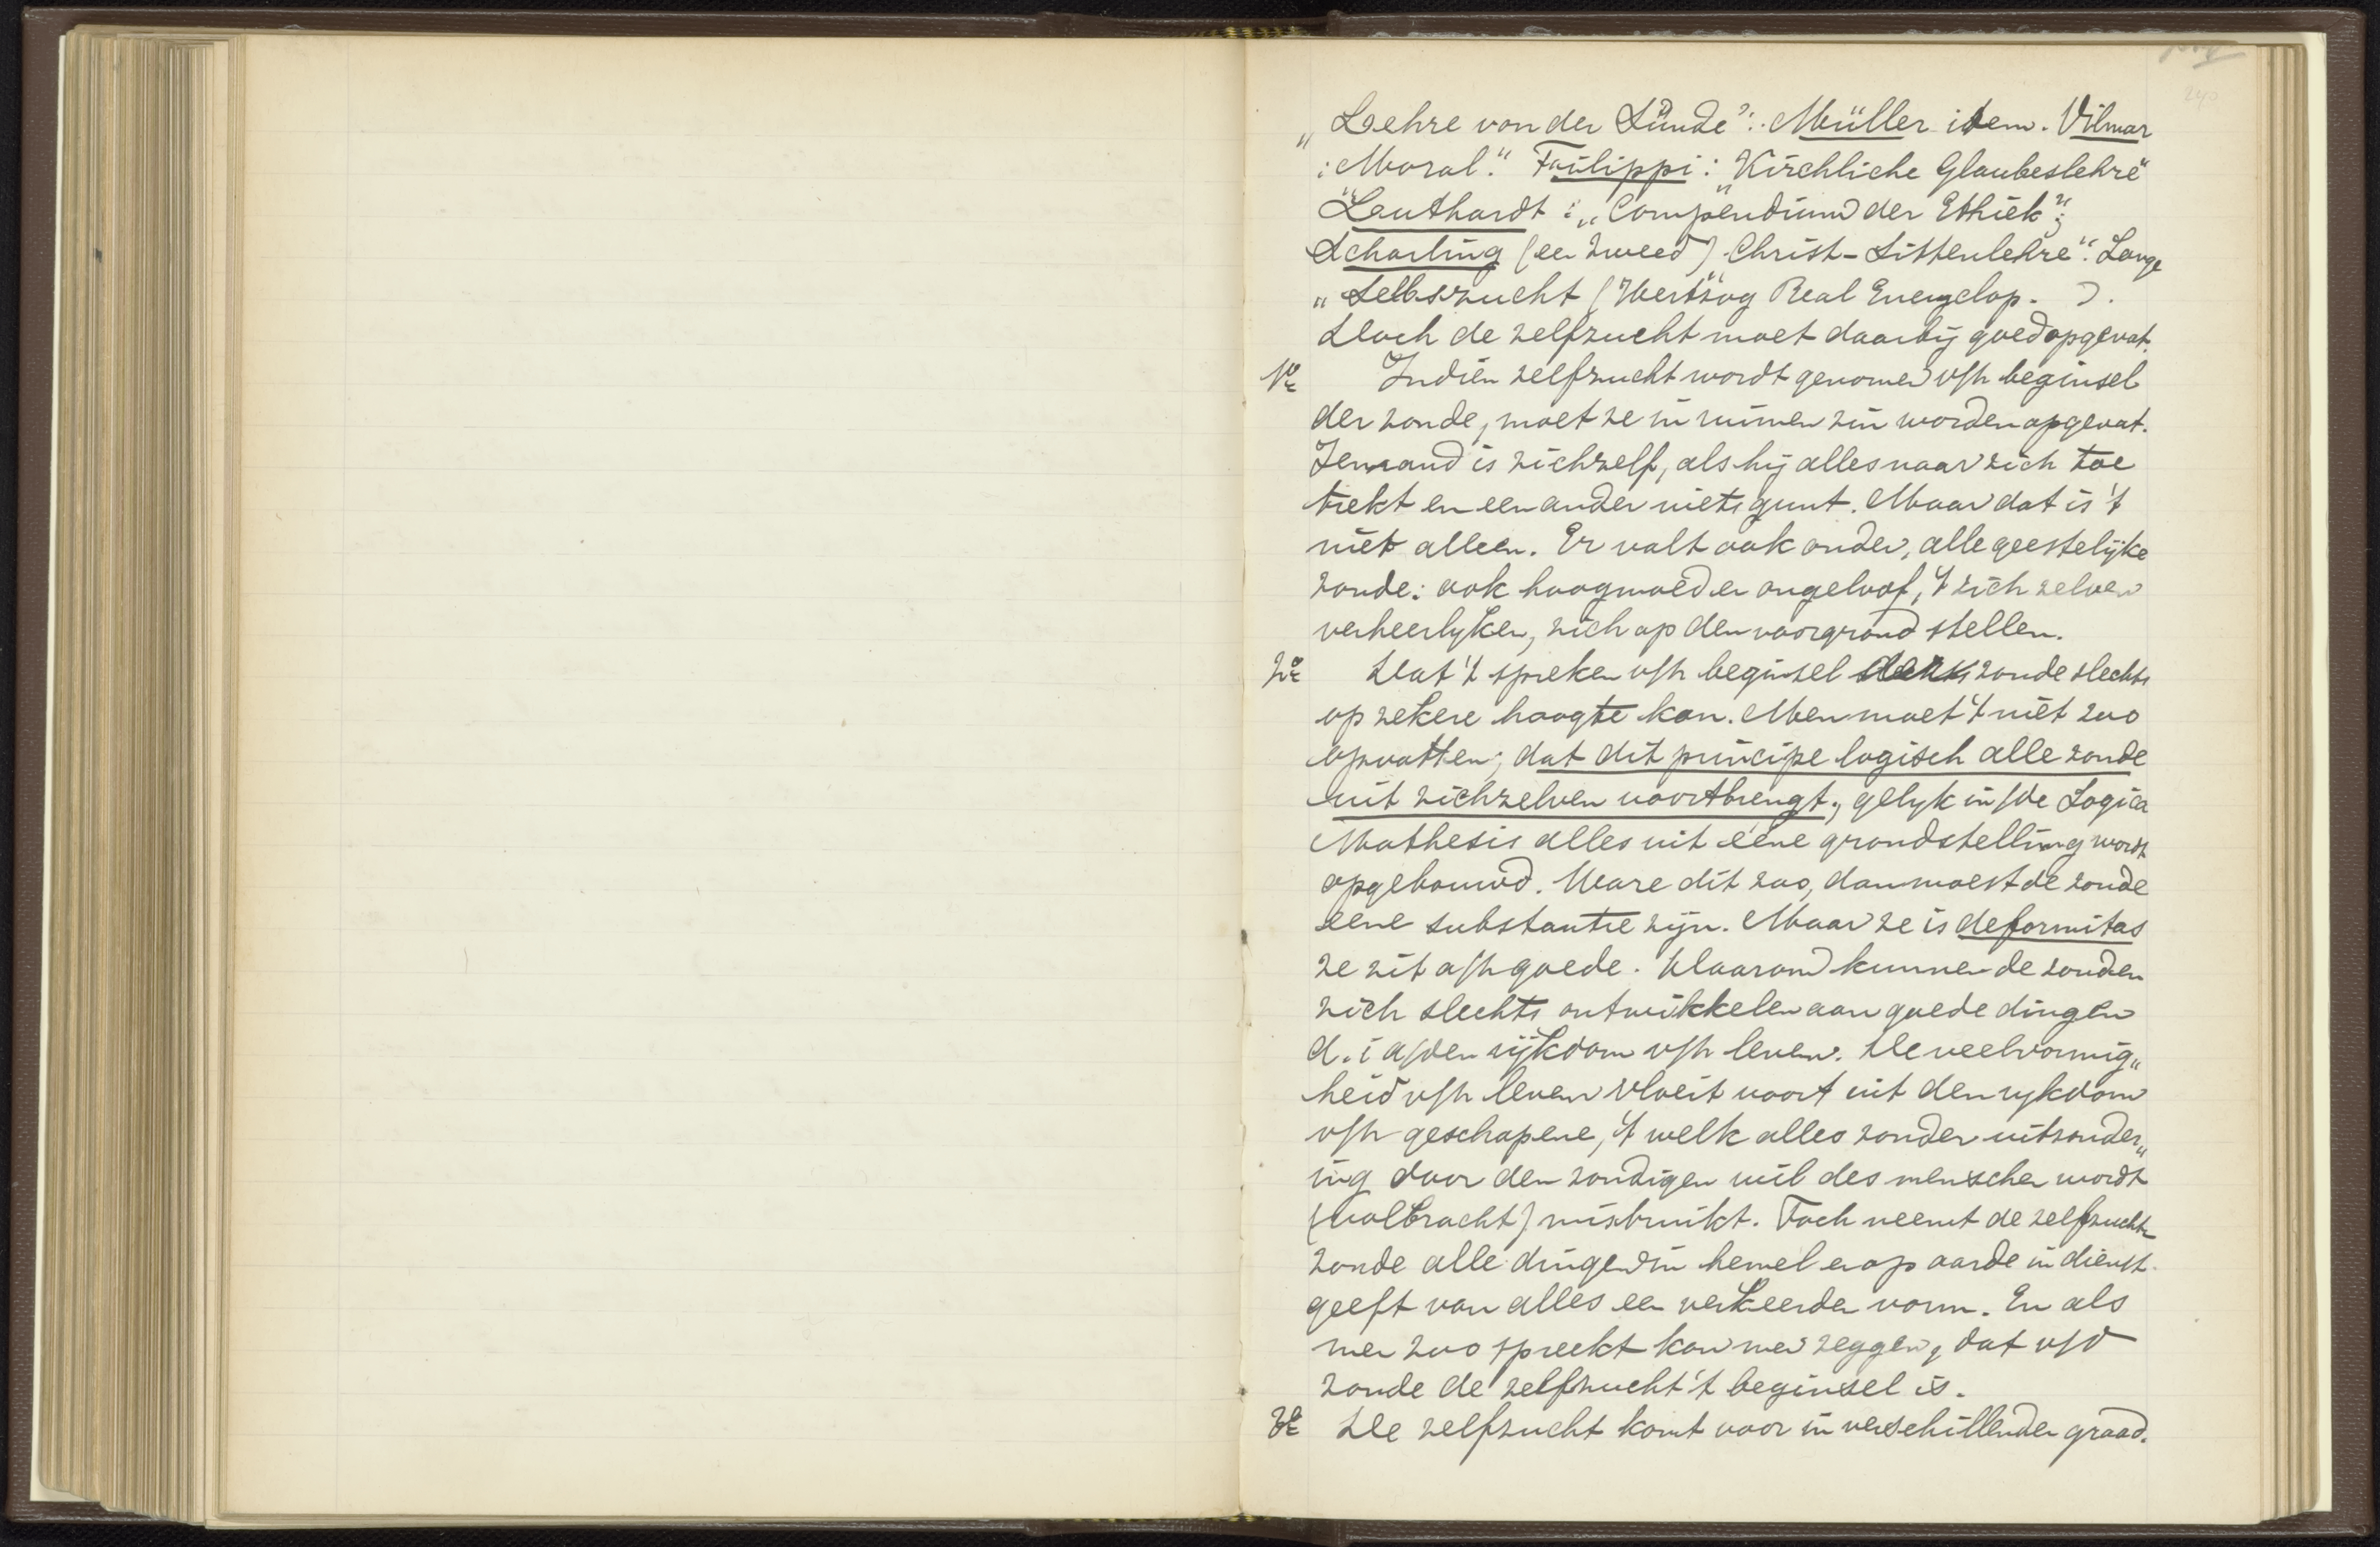 240
„Lehre von der Sünde": Müller idem. Vilmar
: Moral." Failippi: "Kirchliche Glaubeslehre"
Leuthardt: „Compendium der Ethiek";
Scharling (een Zweed) Christ-Sittenlehre". Lange
„Selbszucht (Hertzog Real Encyclop. ).
Doch de zelfzucht moet daarbij goed opgevat.
1e Indien zelfzucht wordt genomen v/h beginsel
der zonde, moet ze in ruimen zin worden opgevat.
Iemand is zichzelf, als hij alles naar zich toe
trekt en een ander niets gunt. Maar dat is 't
niet alleen. Er valt ook onder, alle geestelijke
zonde: ook hoogmoed en ongeloof, 't zich zelven
verheerlyken, zich op den voorgrond stellen.
2e Dat 't spreken v/h beginsel der zonde slechts
op zekere hoogte kan. Men moet 't niet zoo
opvatten; dat dit principe logisch alle zonde
uit zichzelven voortbrengt, gelyk in /de Logica
Mathesis alles uit ééne grondstelling wordt
opgebouwd. Ware dit zoo, dan moest de zonde
eene substantie zijn. Maar ze is deformitas
ze zit a/h goede. Daarom kunnen de zonden
zich slechts ontwikkelen aan goede dingen
d.i a/den rijkdom v/h leven. De veelvormig„
heid v/h leven vloeit voort uit den rykdom
v/h geschapene, 't welk alles zonder uitzonder„
ing door den zondigen wil des menschen wordt
(volbracht) misbruikt. Toch neemt de zelfzucht
zonde alle dingen in hemel en op aarde in dienst.
geeft van alles een verkeerden vorm. En als
men zoo spreekt kan men zeggen, dat v/d
zonde de zelfzucht 't beginsel is.
3e De zelfzucht komt voor in verschillenden graad.